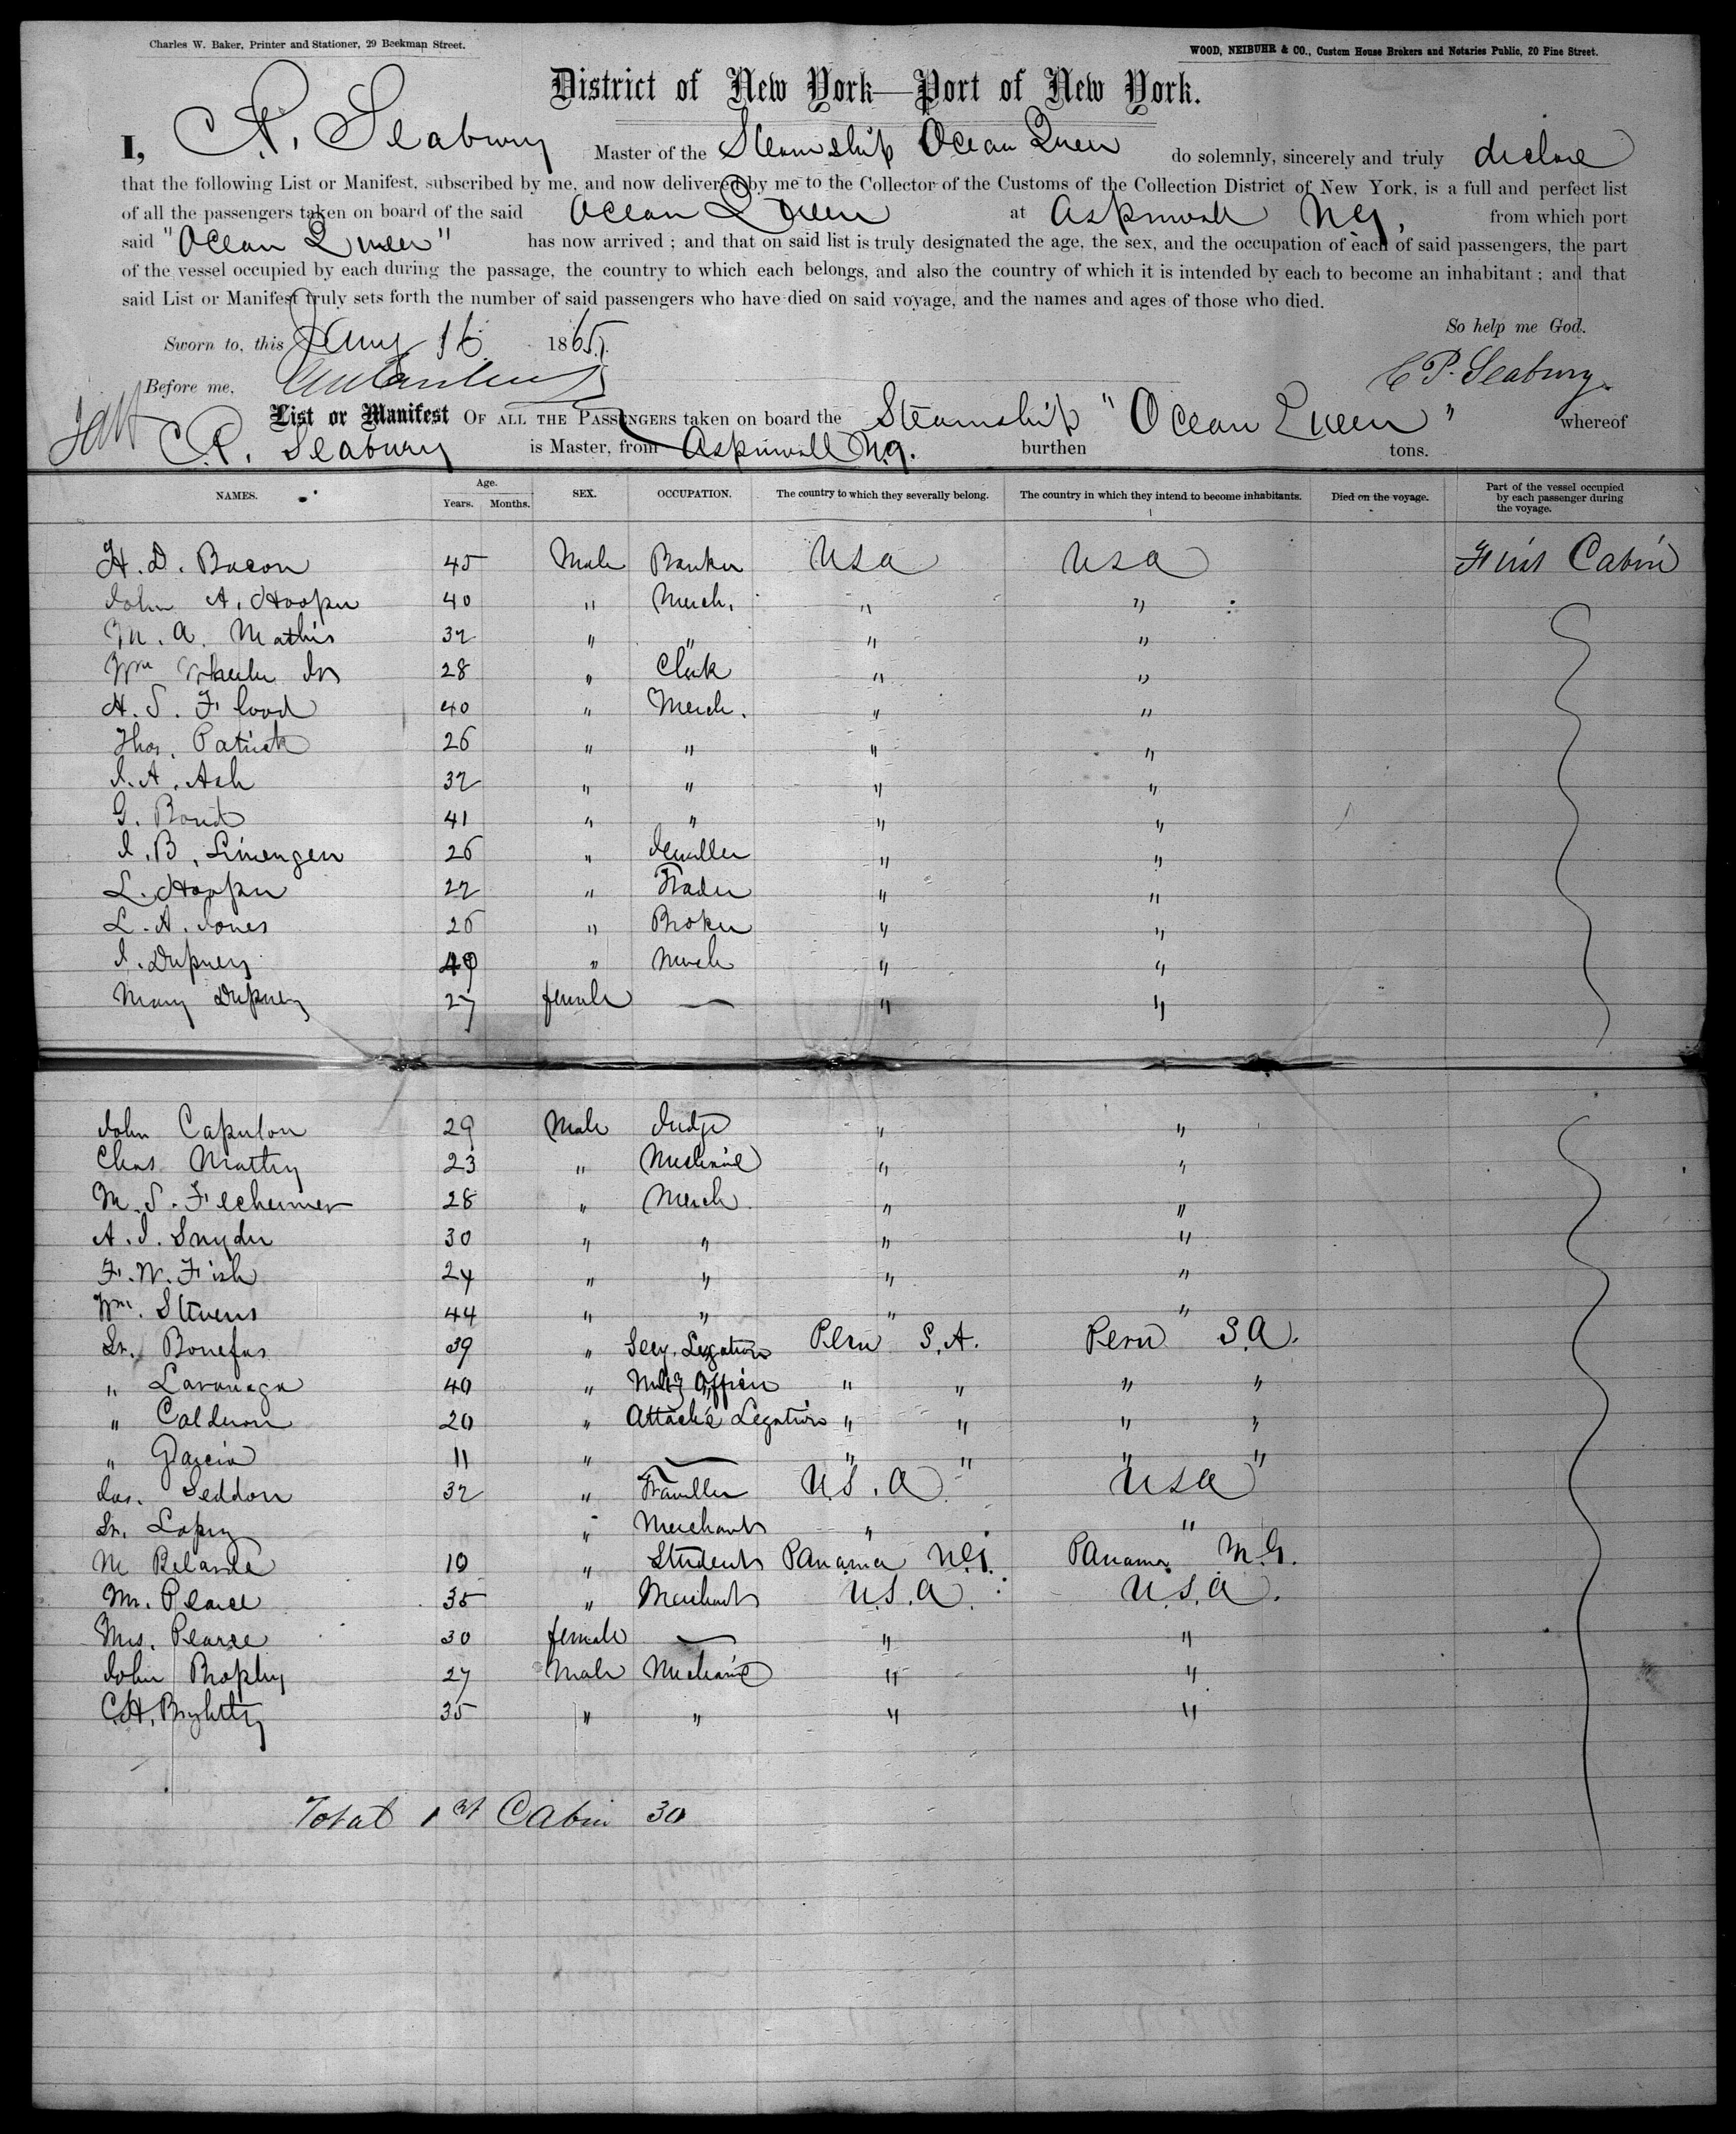 Charles W. Baker, Printer and Stationer, 29 Beekman Street.
WOOD, NEIBUHR & CO., Custom House Brokers and Notaries Public, 20 Pine Street.
District of New York—Port of New York.
I, C. P. Seabury Master of the Steamship Ocean Queen do solemnly, sincerely and truly declare
that the following List or Manifest, subscribed by me, and now delivered by me to the Collector of the Customs of the Collection District of New York, is a full and perfect list
of all the passengers taken on board of the said Ocean Queen at Aspinwall N.G. from which port
said "Ocean Queen" has now arrived ; and that on said list is truly designated the age, the sex, and the occupation of each of said passengers, the part
of the vessel occupied by each during the passage, the country to which each belongs, and also the country of which it is intended by each to become an inhabitant ; and that
said List or Manifest truly sets forth the number of said passengers who have died on said voyage, and the names and ages of those who died.
So help me God.
Sworn to, this Jany 16 1865.
C P. Seabury
Before me,
List or Manifest OF ALL THE PASSENGERS taken on board the Steamship "Ocean Queen" whereof
C. P. Seabury is Master, from Aspinwall N.G. burthen tons.
NAMES. Age. Years. Months. SEX. OCCUPATION. The country to which they severally belong. The country in which they intend to become inhabitants. Died on the voyage. Part of the vessel occupied by each passenger during the voyage.
H. D. Bacon 45 Male Banker USA USA First Cabin
John A. Hooper 40 " Merch. " "
M. A. Mathis 32 " " " "
Wm Wheeler Jr 28 " Clerk " "
H. S. Flood 40 " Merch. " "
Thos. Patrick 26 " " " "
J. A. Ash 32 " " " "
G. Bond 41 " " " "
J. B. Livengen 26 " Jeweller " "
L. Hooper 22 " Trader " "
L. A. Jones 26 " Broker " "
J. Dupuey " Merch " "
Mary Dupuey 27 female — " "
John Capulon 29 Male Judge " "
Chas Mattey 23 " Mechanic " "
M. S. Fechermer 28 " Merch " "
A. J. Snyder 30 " " " "
F. W. Fish 24 " " " "
Wm. Stevens 44 " " " "
Sr. Bonefas 39 " Secy. Legation Peru S.A. Peru S.A.
" Lavanaga 40 " Milty Officer " " " "
" Calderon 20 " Attaché Legation " " " "
" Garcia 11 " — " " " "
Jas. Seddon 32 " Traveller U.S.A. USA
Sr. Lopez " Merchant " "
M Belande 10 " Student Panama N.G. Panama N.G.
Mr. Pearce 35 " Merchant U.S.A. U.S.A.
Mrs. Pearce 30 female — " "
John Brophy 27 Male Mechanic " "
C.H. Brightly 35 " " " "
Total 1st Cabin 30